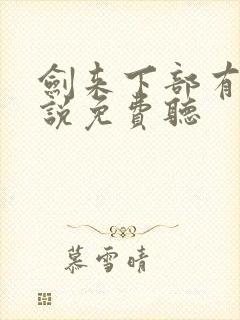 劍来下部有
説免費聽
慕雪晴